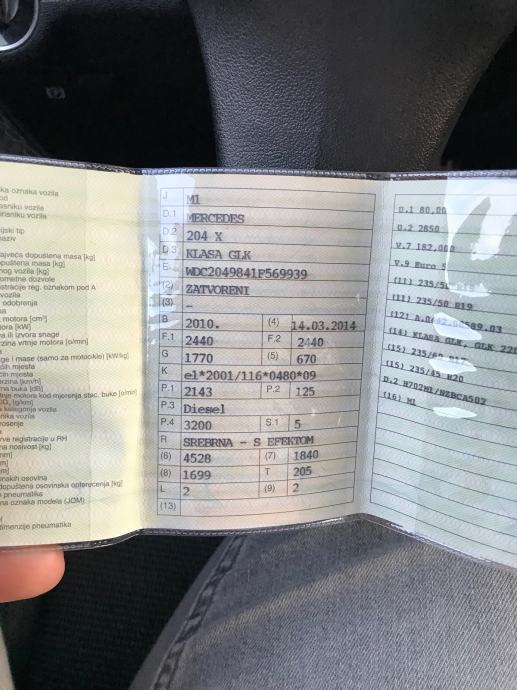 ka oznaka vozila
od
asniku vozila
risniku vozila
ijski tip
naziv
ajveća dopuštena masa [kg]
opuštena masa [kg]
nog vozila [kg]
ometne dozvole
stracije reg. oznakom pod A
vozila
odobrenja
na
motora [cm³]
ora [kW]
va ili izvora snage
rzina vrtnje motora [o/min]
ge i mase (samo za motocikle) [kW/kg]
ćih mjesta
ćih mjesta
rzina [km/h]
na buka [dB]
tnje motora kod mjerenja stac. buke [o/min]
CO₂ [g/km]
a kategorija vozila
nika vozila
prosenje
rve registracije u RH
na nosivost [kg]
nm]
m]
mm]
nskih osovina
dopušteno osovinska opterećenja [kg]
pneumatika
na oznaka modela (JOM)
dimenzije pneumatika
J M1
D.1 MERCEDES
D.2 204 X
D.3 KLASA GLK
E WDC2049841F569939
(2) ZATVORENI
(3) -
B 2010. (4) 14.03.2014
F.1 2440 F.2 2440
G 1770 (5) 670
K e1*2001/116*0480*09
P.1 2143 P.2 125
P.3 Diesel
P.4 3200 S.1 5
R SREBRNA - S EFEKTOM
(6) 4528 (7) 1840
(8) 1699 T 205
L 2 (9) 2
(13)
U.1 80,00
U.2 2850
V.7 182,000
V.9 Euro
(11) 235/50
(11) 235/50 R19
(12)
(14) KLASA GLK, GLK 220
(15) 235/60 R17
(15) 235/45 R20
D.2
(16) M1